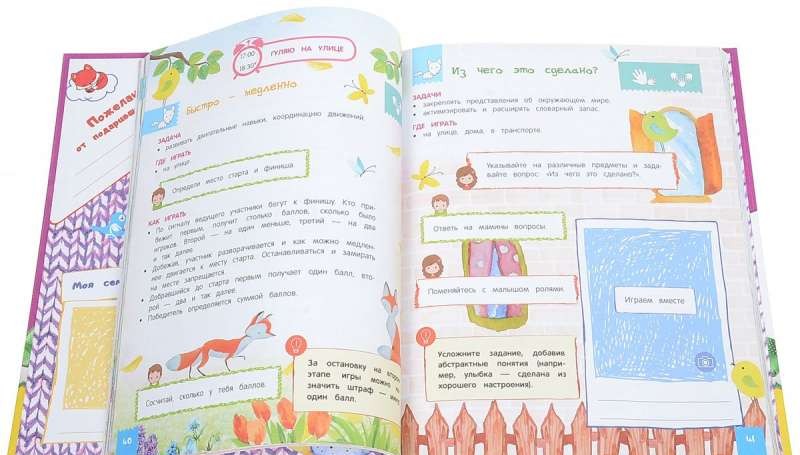 Пожелан
от подаривше
Моя сем
17:00
18:30*
ГУЛЯЮ НА УЛИЦЕ
Быстро – медленно
ЗАДАЧА
• развивать двигательные навыки, координацию движений.
ГДЕ ИГРАТЬ
• на улице.
Определи место старта и финиша.
КАК ИГРАТЬ
• По сигналу ведущего участники бегут к финишу. Кто при-
бежит первым, получит столько баллов, сколько было
игроков. Второй — на один меньше, третий — на два
и так далее.
• Добежав, участник разворачивается и как можно медлен-
нее двигается к месту старта. Останавливаться и замирать
на месте запрещается.
• Добравшийся до старта первым получает один балл, вто-
рой — два и так далее.
• Победитель определяется суммой баллов.
Сосчитай, сколько у тебя баллов.
За остановку на втором
этапе игры можно
значить штраф —
один балл.
40
Из чего это сделано?
ЗАДАЧИ
• закреплять представления об окружающем мире,
• активизировать и расширять словарный запас.
ГДЕ ИГРАТЬ
• на улице, дома, в транспорте.
Указывайте на различные предметы и зада-
вайте вопрос: «Из чего это сделано?».
Ответь на мамины вопросы.
Поменяйтесь с малышом ролями.
Играем вместе
Усложните задание, добавив
абстрактные понятия (напри-
мер, улыбка — сделана из
хорошего настроения).
41